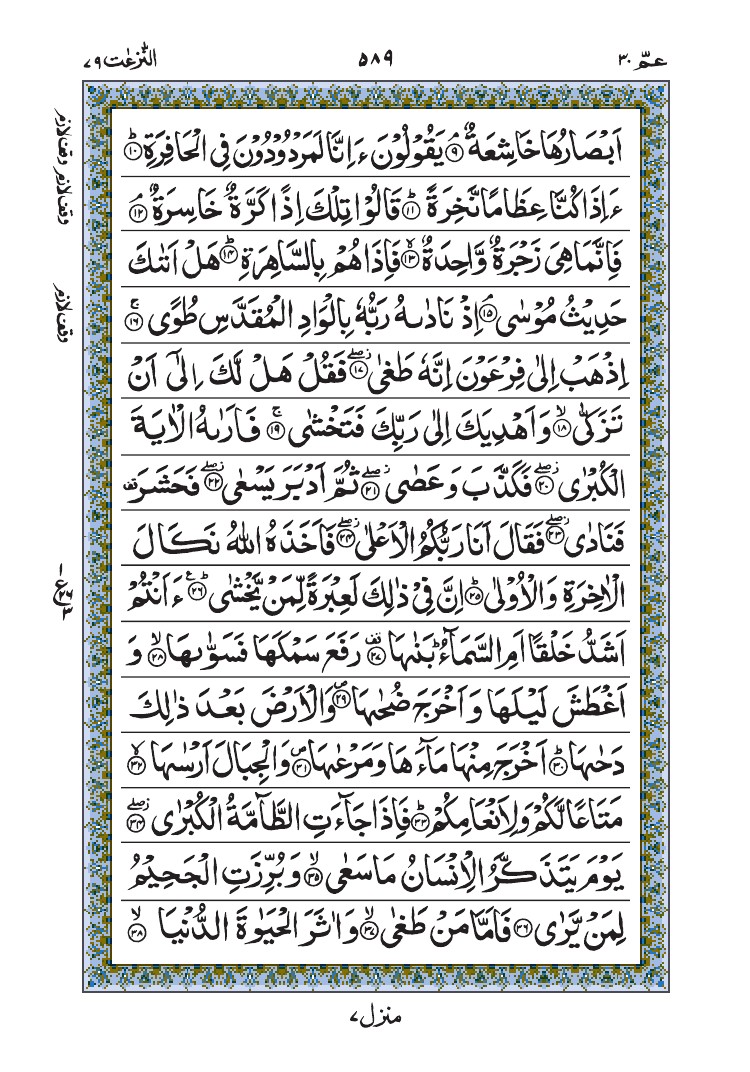 عمّ ٣٠
٥٨٩
النّٰزعٰت ٧٩
اَبْصَارُهَا خَاشِعَةٌ ۘ﴿۹﴾ يَقُوْلُوْنَ ءَاِنَّا لَمَرْدُوْدُوْنَ فِى الْحَافِرَةِ ؕ﴿۱۰﴾
ءَاِذَا كُنَّا عِظَامًا نَّخِرَةً ؕ﴿۱۱﴾ قَالُوْا تِلْكَ اِذًا كَرَّةٌ خَاسِرَةٌ ۘ﴿۱۲﴾
فَاِنَّمَا هِىَ زَجْرَةٌ وَّاحِدَةٌ ۙ﴿۱۳﴾ فَاِذَا هُمْ بِالسَّاهِرَةِ ؕ﴿۱۴﴾ هَلْ اَتٰٮكَ
حَدِيْثُ مُوْسٰى ۘ﴿۱۵﴾ اِذْ نَادٰٮهُ رَبُّهٗ بِالْوَادِ الْمُقَدَّسِ طُوًى ۚ﴿۱۶﴾
اِذْهَبْ اِلٰى فِرْعَوْنَ اِنَّهٗ طَغٰى ۖ﴿۱۷﴾ فَقُلْ هَلْ لَّكَ اِلٰٓى اَنْ
تَزَكّٰى ۙ﴿۱۸﴾ وَاَهْدِيَكَ اِلٰى رَبِّكَ فَتَخْشٰى ۚ﴿۱۹﴾ فَاَرٰٮهُ الْاٰيَةَ
الْكُبْرٰى ۖ﴿۲۰﴾ فَكَذَّبَ وَعَصٰى ۖ﴿۲۱﴾ ثُمَّ اَدْبَرَ يَسْعٰى ۖ﴿۲۲﴾ فَحَشَرَ
فَنَادٰى ۖ﴿۲۳﴾ فَقَالَ اَنَا رَبُّكُمُ الْاَعْلٰى ۖ﴿۲۴﴾ فَاَخَذَهُ اللّٰهُ نَكَالَ
الْاٰخِرَةِ وَالْاُوْلٰى ؕ﴿۲۵﴾ اِنَّ فِىْ ذٰلِكَ لَعِبْرَةً لِّمَنْ يَّخْشٰى ؕ﴿۲۶﴾ ءَاَنْتُمْ
اَشَدُّ خَلْقًا اَمِ السَّمَآءُ ؕ بَنٰٮهَا ﴿۲۷﴾ رَفَعَ سَمْكَهَا فَسَوّٰٮهَا ۙ﴿۲۸﴾ وَ
اَغْطَشَ لَيْلَهَا وَاَخْرَجَ ضُحٰٮهَا ﴿۲۹﴾ وَالْاَرْضَ بَعْدَ ذٰلِكَ
دَحٰٮهَا ؕ﴿۳۰﴾ اَخْرَجَ مِنْهَا مَآءَهَا وَمَرْعٰٮهَا ﴿۳۱﴾ وَالْجِبَالَ اَرْسٰٮهَا ۙ﴿۳۲﴾
مَتَاعًا لَّكُمْ وَلِاَنْعَامِكُمْ ؕ﴿۳۳﴾ فَاِذَا جَآءَتِ الطَّآمَّةُ الْكُبْرٰى ۖ﴿۳۴﴾
يَوْمَ يَتَذَكَّرُ الْاِنْسَانُ مَا سَعٰى ۙ﴿۳۵﴾ وَبُرِّزَتِ الْجَحِيْمُ
لِمَنْ يَّرٰى ﴿۳۶﴾ فَاَمَّا مَنْ طَغٰى ۙ﴿۳۷﴾ وَاٰثَرَ الْحَيٰوةَ الدُّنْيَا ۙ﴿۳۸﴾
وقف لازم وقف لازم
وقف لازم
منزل ٧